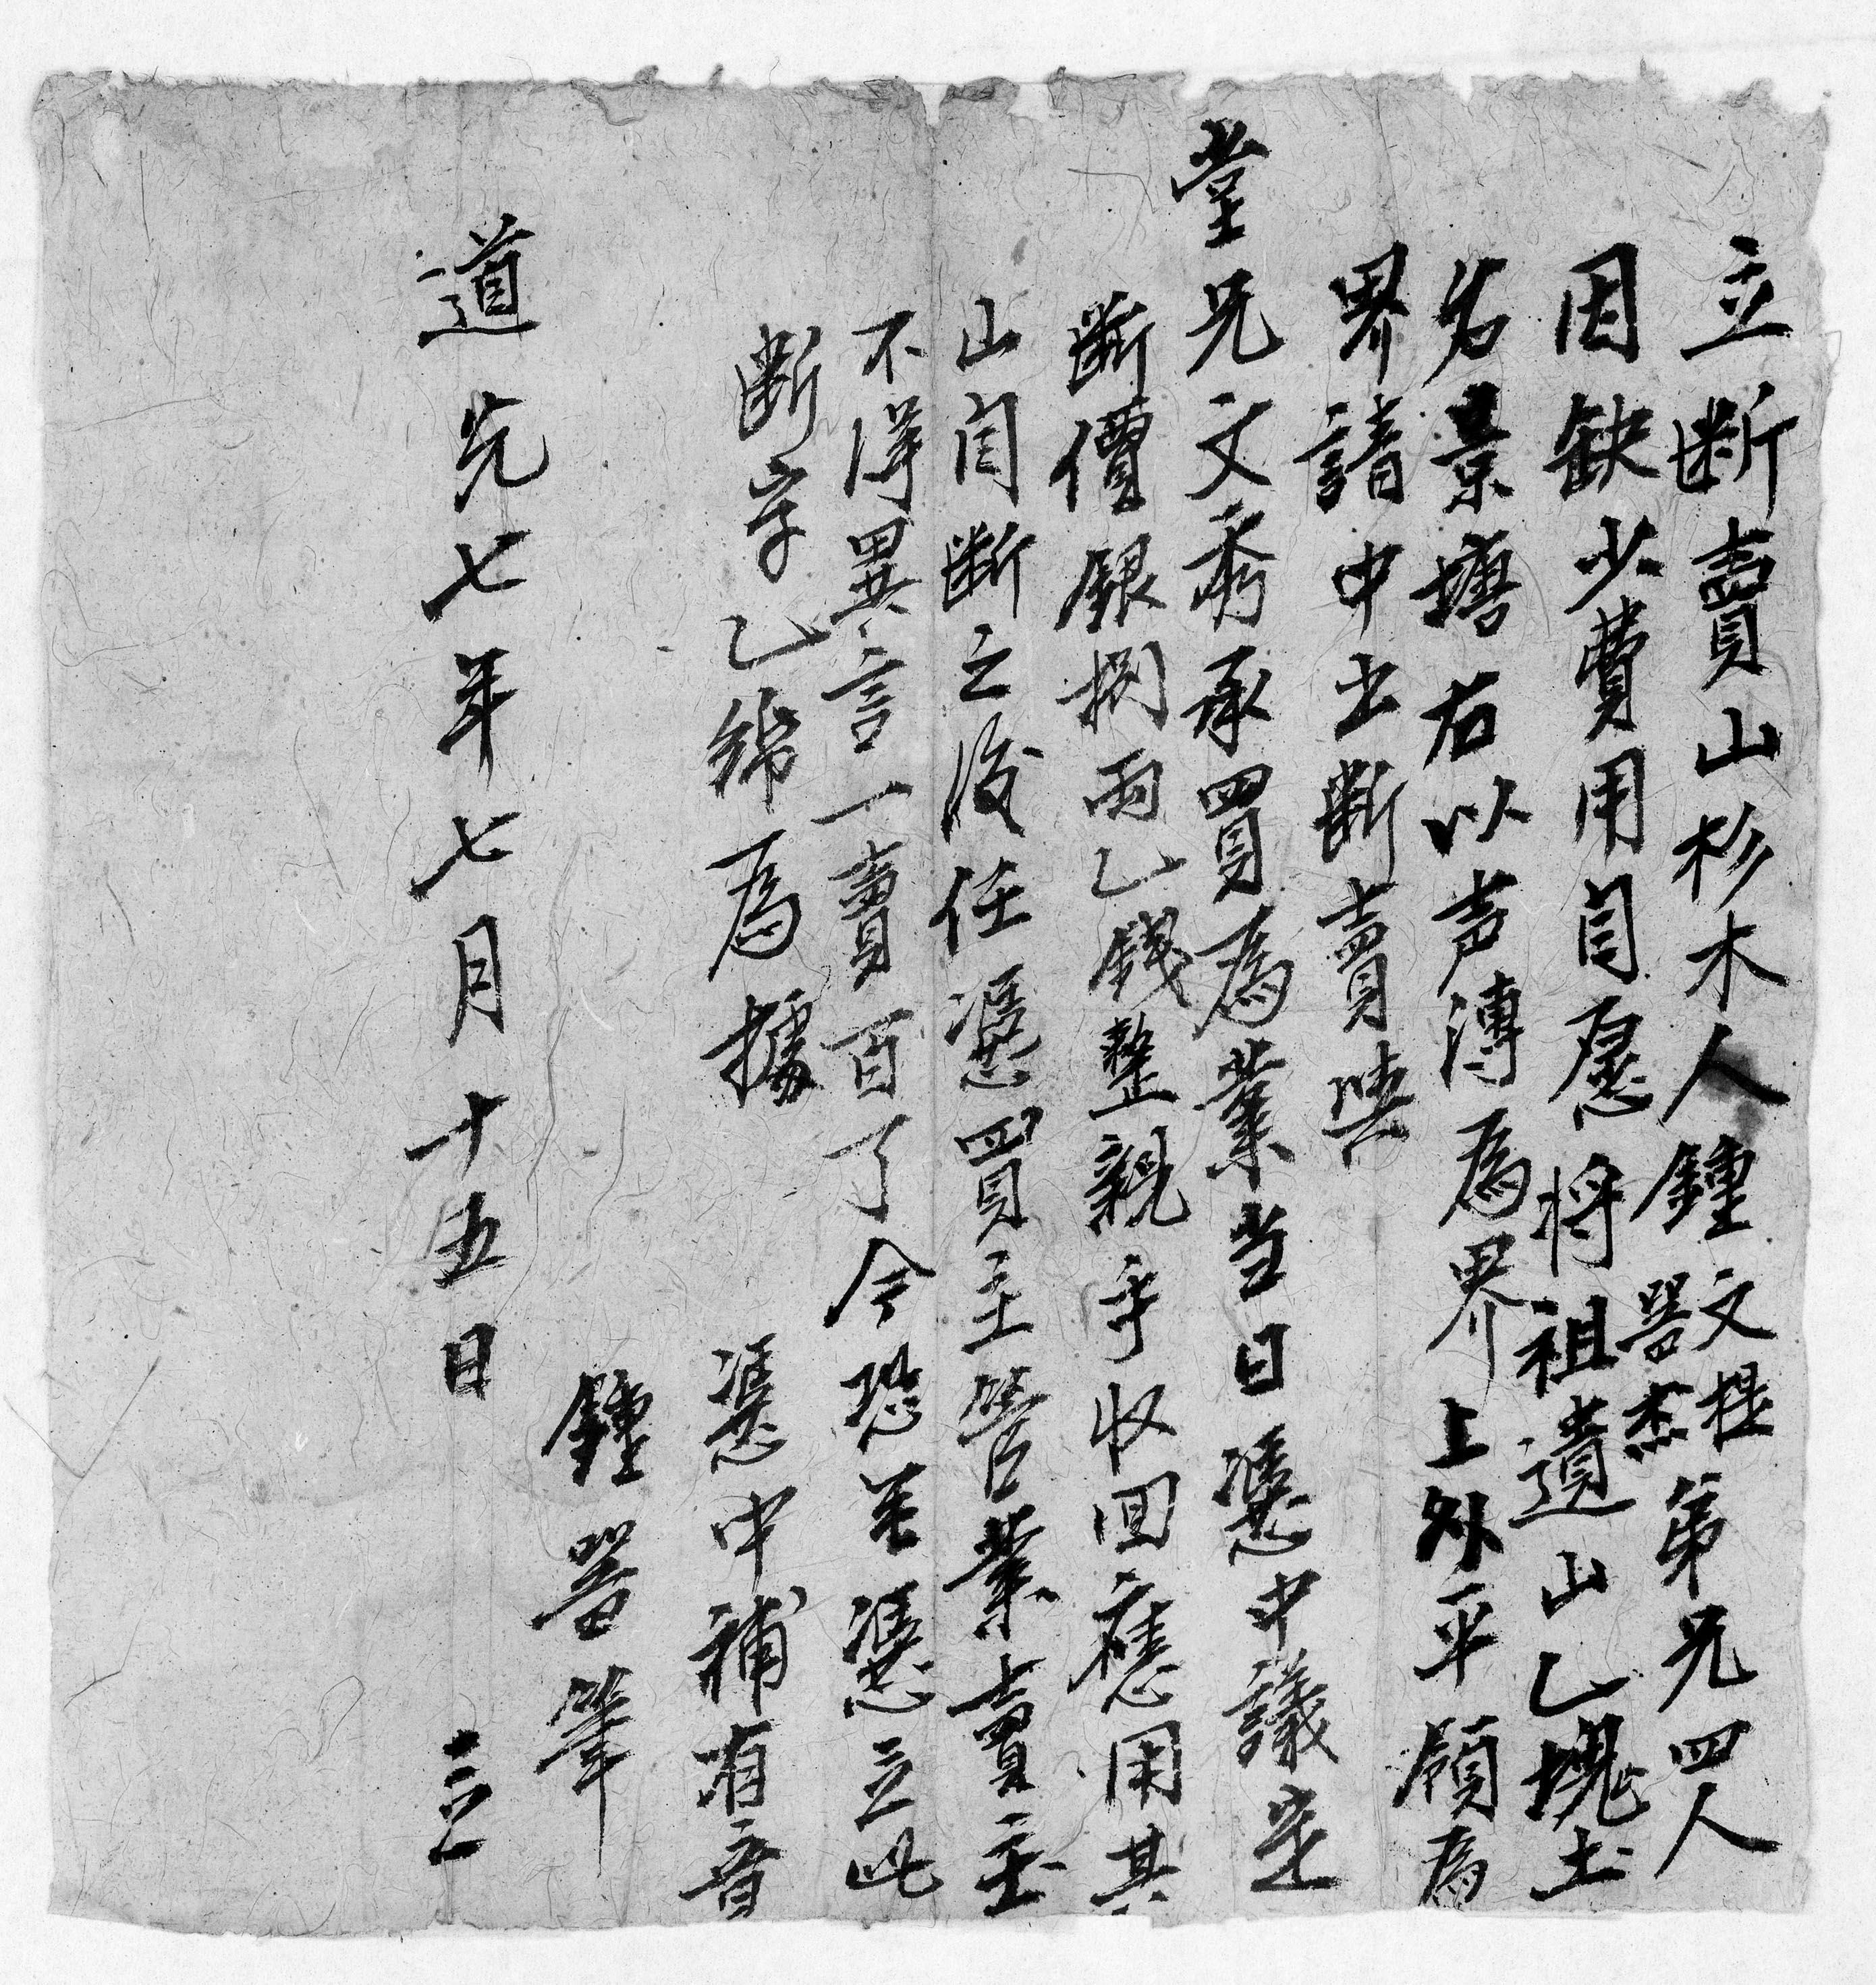 立断賣山杉木人鍾文提噐杰弟兄四人
因缺少費用自愿将祖遺山乙塊土
名景𡍼右以声溥為界上外平領為
界請中出断賣與
堂兄文秀承買為業当日憑中議定
断價銀捌両乙錢整親手收回應用其
山自断之後任憑買主管業賣主
不得異言一賣百了今恐無憑立此
断字乙紙為據
憑中補有音
鍾噐筆
道光七年七月十五日 立